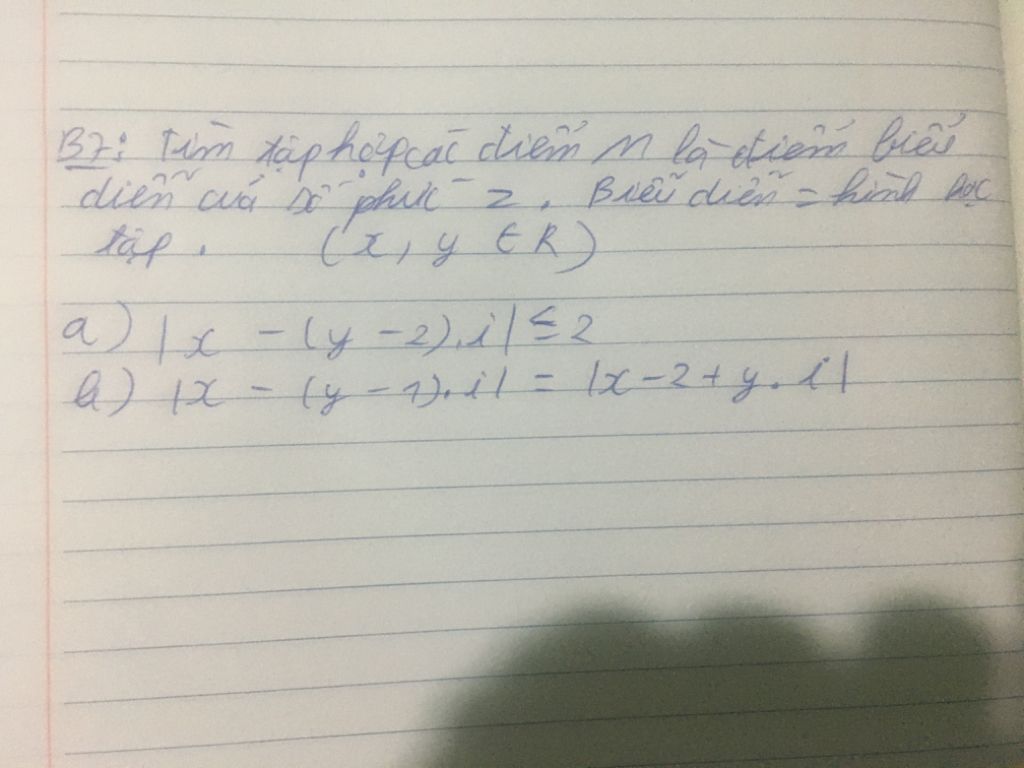 B7: Tìm tập hợp các điểm M là điểm biểu
diễn của số phức z. Biểu diễn = hình học
tập. (x, y ∈ R)
a) |x - (y - 2).i| ≤ 2
b) |x - (y - 1).i| = |x - 2 + y.i|